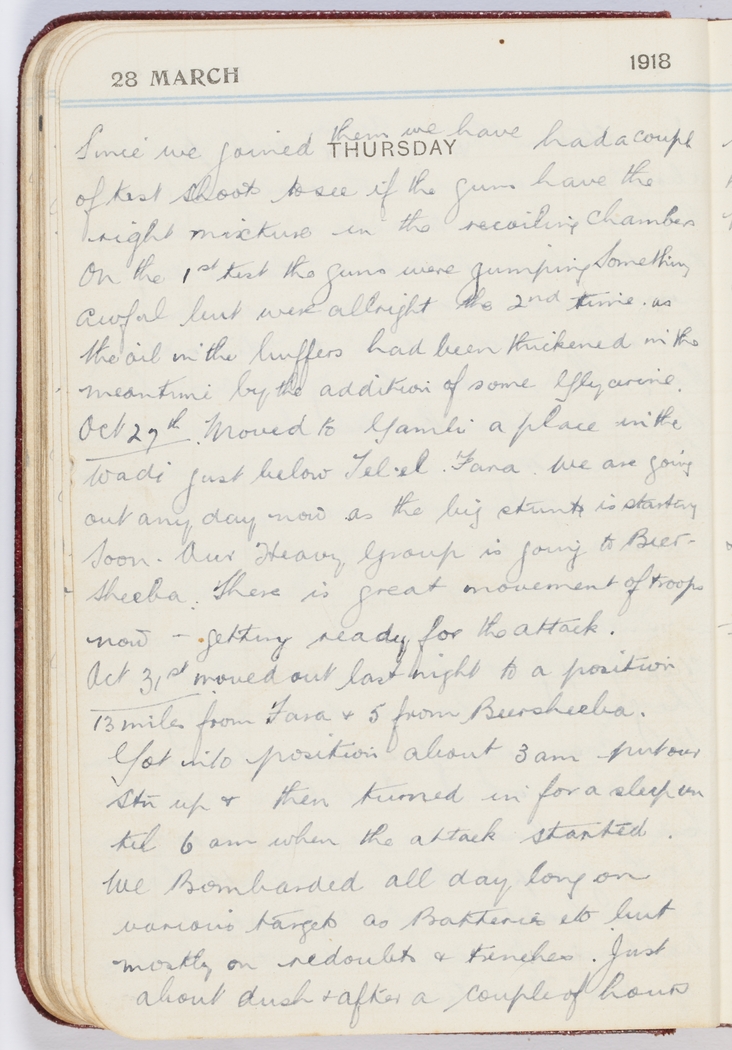 28 MARCH 1918
THURSDAY
Since we joined them we have had a couple
of test shoots to see if the guns have the
right mixture in the recoiling chamber
On the 1st test the guns were jumping something
awful but were allright the 2nd time. as
the oil in the buffers had been thickened in the
meantime by the addition of some Glycerine.
Oct 27th. Moved to Gamli a place in the
Wadi just below Tel-el. Fara. We are going
out any day now as the big stunt is starting
soon. Our Heavy Group is going to Bier-
sheeba. There is great movement of troops
now - getting ready for the attack.
Oct 31st moved out last night to a position
13 miles from Fara & 5 from Beersheeba.
Got into position about 3 am put our
Stn up & then turned in for a sleep un
til 6 am when the attack started.
We Bombarded all day long on
various targets as Batteries etc but
mostly on redoubts & trenches. Just
about dusk & after a couple of hours